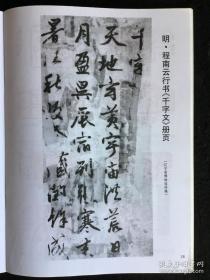 明·程南云行书《千字文》册页
千字
天地玄黃宇宙洪荒日
月盈昃辰宿列張寒來
暑往秋收冬藏閏餘成